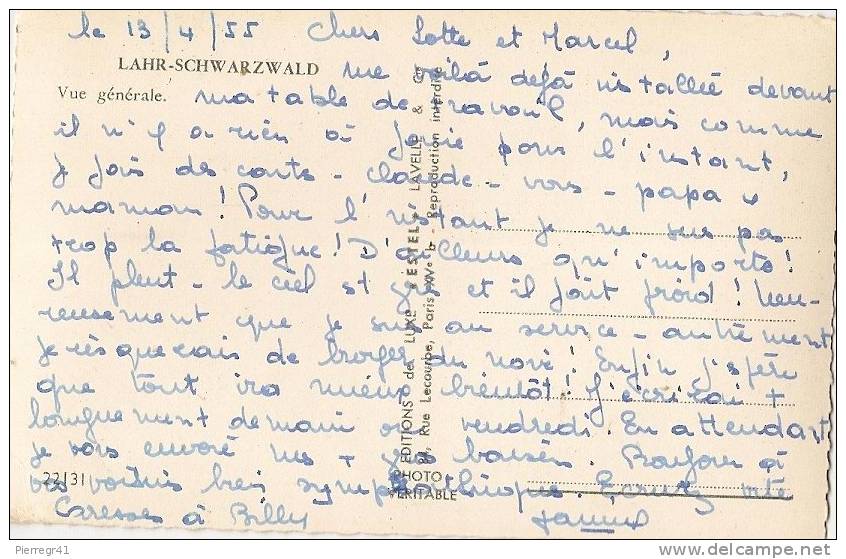 le 13/4/55 Chers Lotte et Marcel,
LAHR-SCHWARZWALD
me voilà dejà installée devant
Vue générale.
ma table de travail, mais comme
il n'y a rien à faire pour l'instant,
je fais des carts - claude - vous - papa x
maman! Pour l'instant je ne sens pas
trop la fatigue! D'ailleurs qu'importe!
Il pleut - le ciel est gris et il fait froid! Heu-
reusement que je suis au service - autrement
je risquerais de broyer du noir! Enfin j'espère
que tout ira mieux bientôt! J'écrirai +
longuement demain ou vendredi. En attendant
je vous envoie mes + gros baisers. Bonjour à
vos voisins bien sympathiques. Ecrivez vite
Caresses à Billy
22/31
PHOTO VERITABLE
EDITIONS de LUXE ESTEL - LAVELLE & Co
Rue Lecourbe, Paris XVe - Reproduction interdite
Pierregr41
www.delcampe.net